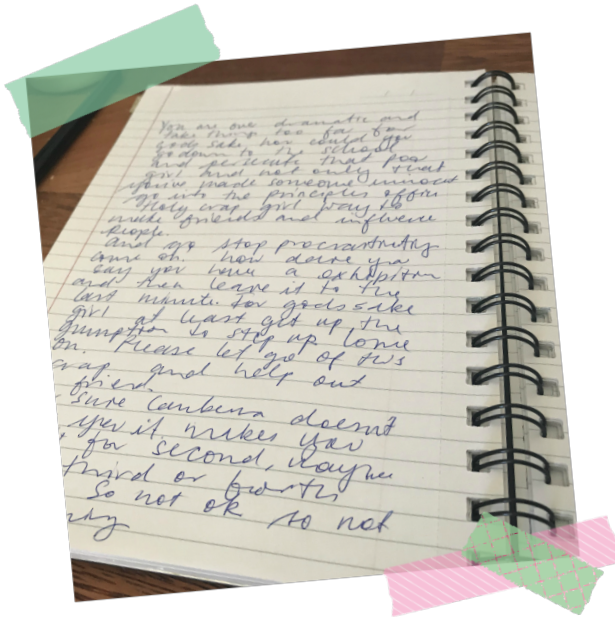 You are one dramatic and
take things too far for
gods sake, how could you
go down to the school
and persecute that poor
girl and not only that
you've made someone innocent
go into the principles office
Holy crap girl way to
make friends and influence
people.
And go stop
come on. how dare you
say you have a
and then leave it to the
last minute. for gods sake
girl at least get up the
gumption to step up come
on. Please let go of this
crap and help out
friend.
sure Canberra doesnt
it makes you
for second, maybe
third or fourth
So not ok so not